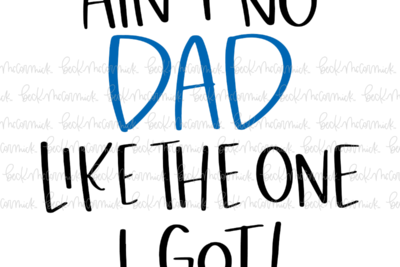 AIN'T NO
DAD
LIKE THE ONE
I GOT!